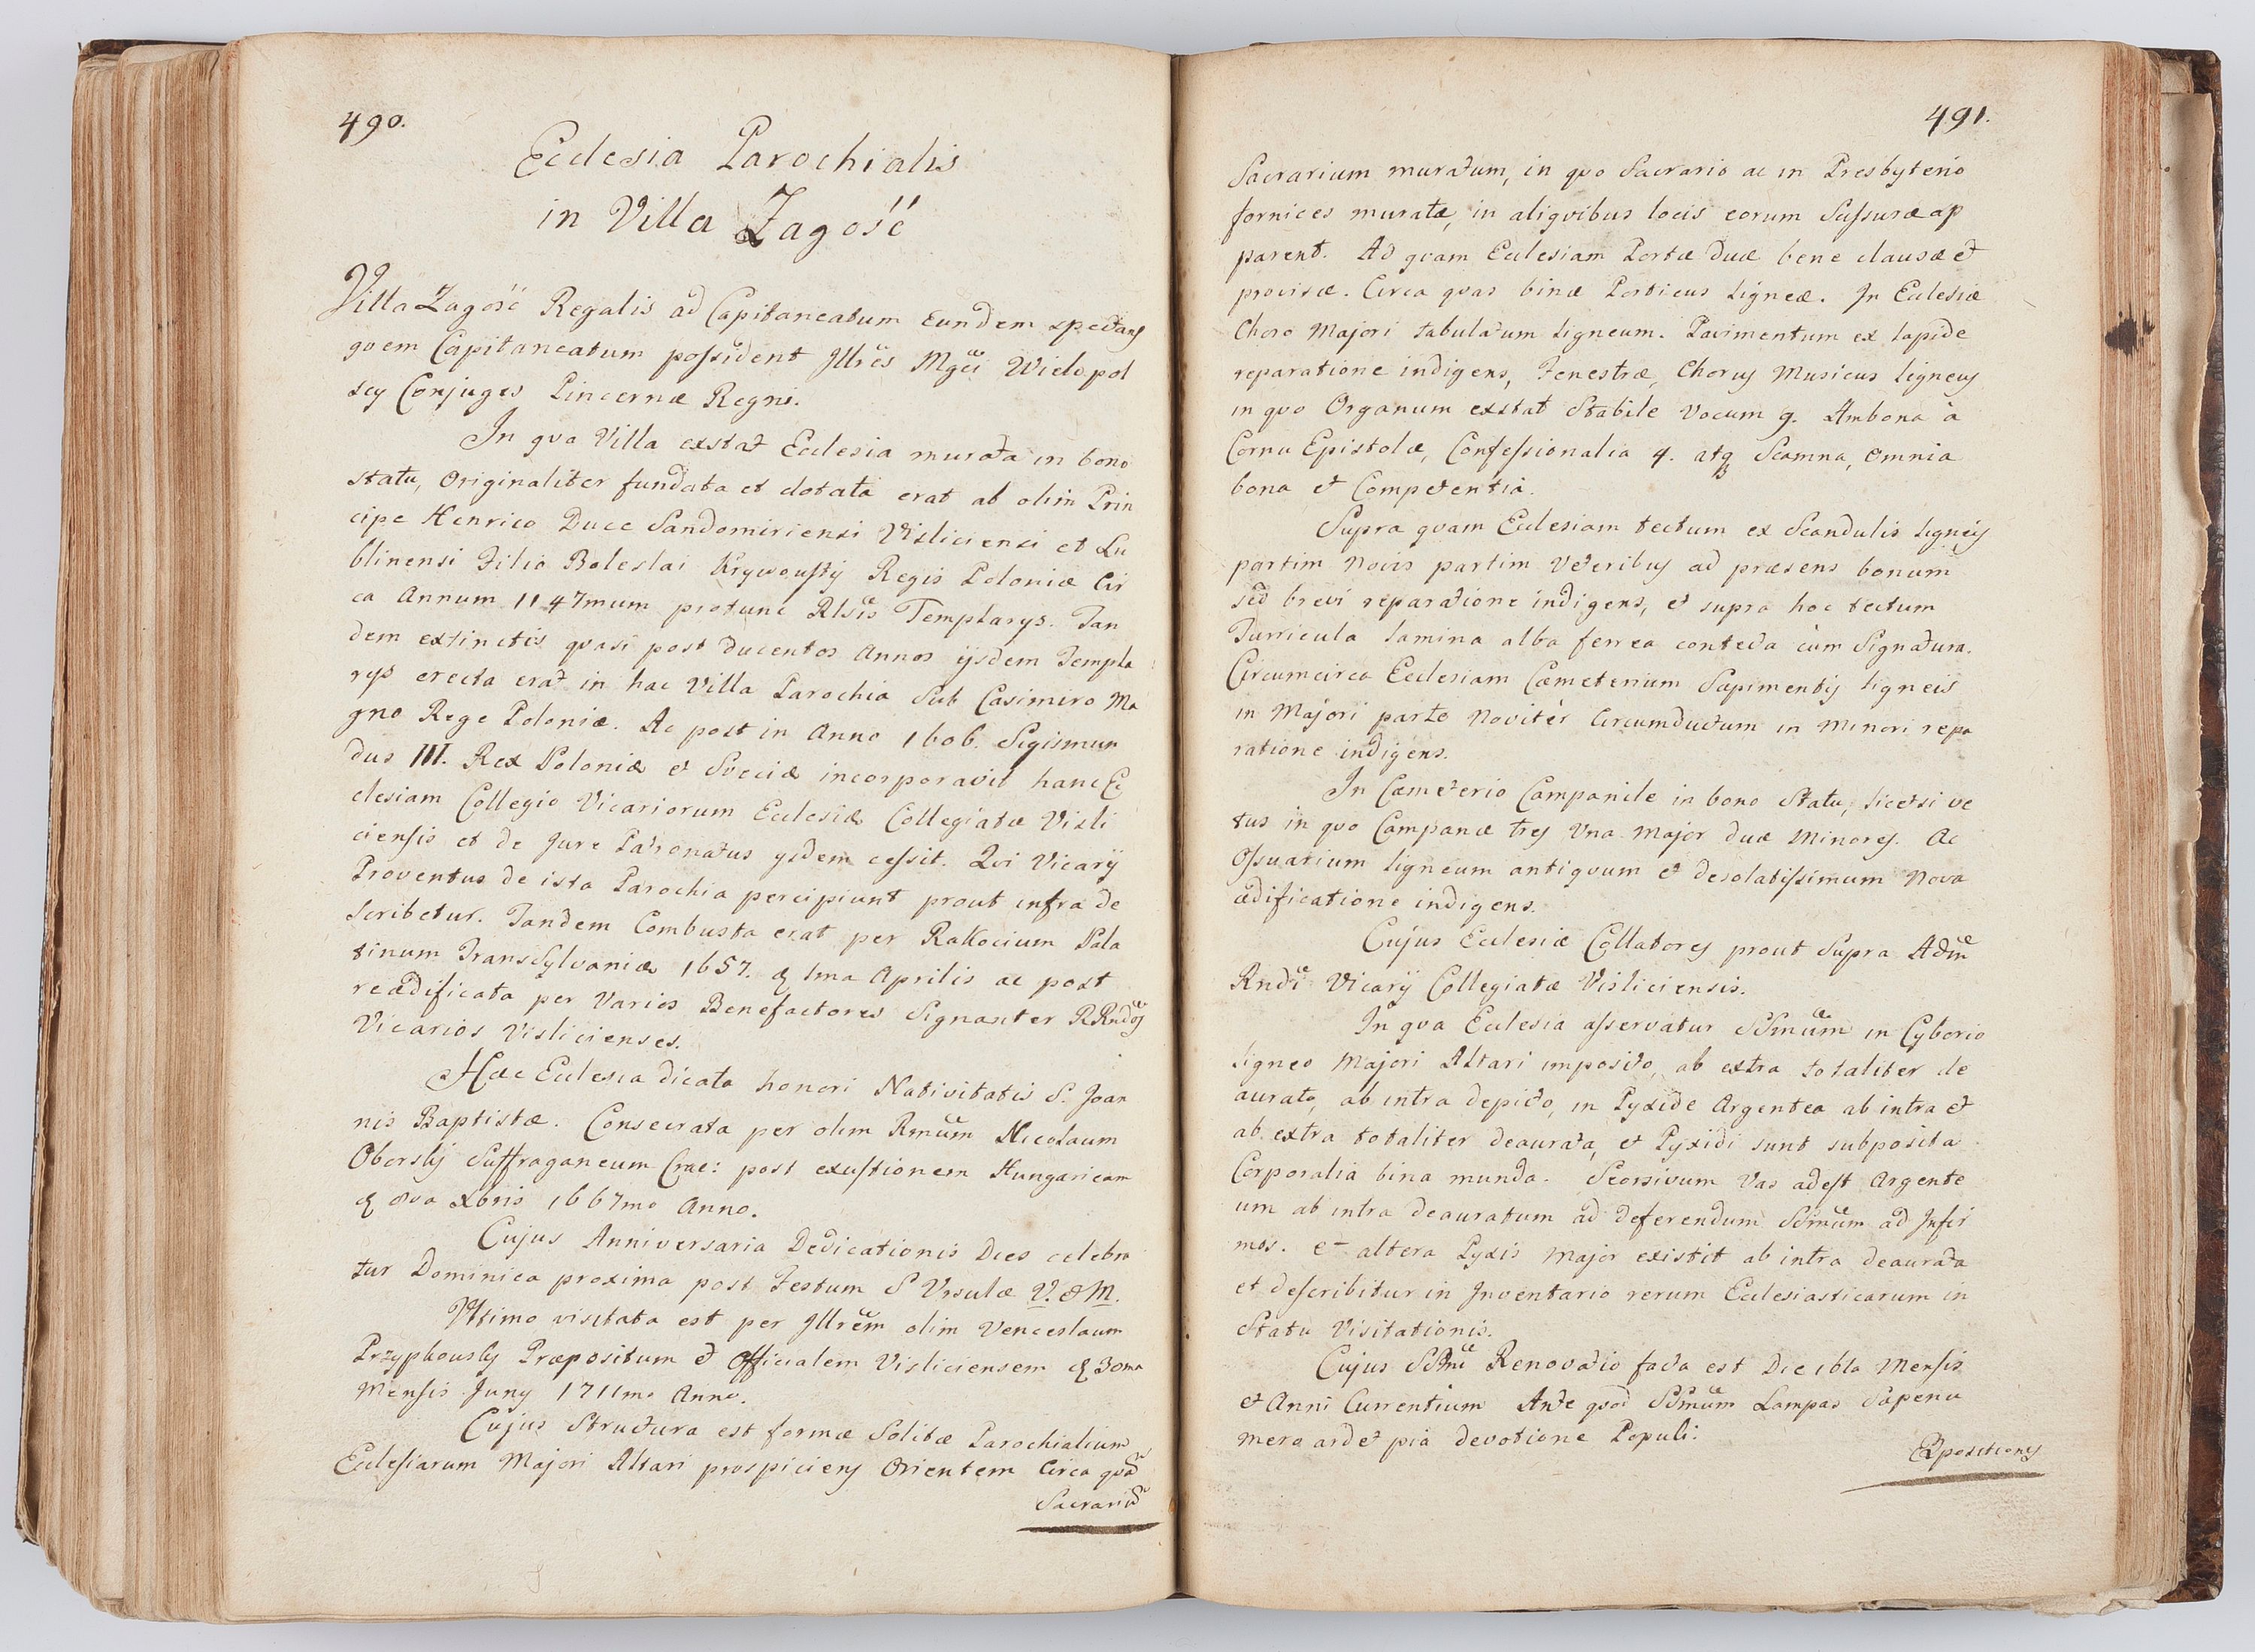 490.
Ecclesia Parochialis
in Villa Zagość
Villa Zagość Regalis ad Capitaneatum eundem spectans
quem Capitaneatum possident Illres Mgci Wielopol
scy Conjuges Pincernæ Regni.
In qva Villa exstat Ecclesia murata in bono
statu, Originaliter fundata et dotata erat ab olim Prin
cipe Henrico Duce Sandomiriensi Visliciensi et Lu
blinensi Filio Boleslai Krzywousty Regis Poloniæ Cir
ca Annum 1147mum protunc Rlsis Templarys. Tan
dem extinctis qvasi post ducentos Annos ijsdem Templa
rys erecta erat in hac Villa Parochia Sub Casimiro Ma
gno Rege Poloniæ. Ac post in Anno 1606. Sigismun
dus III. Rex Poloniæ et Sveciæ incorporavit hanc Ec
clesiam Collegio Vicariorum Ecclesiæ Collegiatæ Visli
ciensis et de Jure Patronatus ysdem cessit. Qvi Vicarij
Proventus de ista Parochia percipiunt prout infra de
scribetur. Tandem Combusta erat per Rakocium Pala
tinum TransSylvaniæ 1657. d 1ma Aprilis ac post
reædificata per Varios Benefactores Signanter RRndos
Vicarios Vislicienses.
Hæc Ecclesia dicata honori Nativitatis S. Joan
nis Baptistæ. Consecrata per olim Rmum Nicolaum
Oborski Suffraganeum Crac: post exustionem Hungaricam
d 8va Xbris 1667mo Anno.
Cujus Anniversaria Dedicationis Dies celebra
tur Dominica proxima post Festum S Vrsulæ V. & M.
Vltimo visitata est per Illrem olim Venceslaum
Przypkowski Præpositum et Officialem Visliciensem d 30ma
Mensis Juny 1711mo Anno.
Cujus Structura est formæ Solitæ Parochialium
Ecclesiarum Majori Altari prospiciens Orientem Circa qvod
Sacrariu
491.
Sacrarium muratum, in qvo Sacrario ac in Presbyterio
fornices muratæ, in aliqvibus locis eorum Scissuræ ap
parent. Ad qvam Ecclesiam Portæ duæ bene clausæ et
provisæ. Circa qvas binæ Porticus ligneæ. In Ecclesiæ
Choro Majori tabulatum ligneum. Pavimentum ex lapide
reparatione indigens, Fenestræ, Chorus Musicus ligneus
in qvo Organum exstat Stabile Vocum 9. Ambona à
Cornu Epistolæ, Confessionalia 4. atq Scamna, omnia
bona et Competentia.
Supra qvam Ecclesiam tectum ex Scandulis ligneis
partim Novis partim Veteribus ad præsens bonum
sed brevi reparatione indigens, et supra hoc tectum
Turricula lamina alba ferrea contecta cum Signatura.
Circumcirca Ecclesiam Cæmeterium Sæpimentis ligneis
in Majori parte Noviter Circumductum in Minori repa
ratione indigens.
In Cæmeterio Campanile in bono Statu, licetsi ve
tus in qvo Campanæ tres Vna Major duæ Minores. Ac
Ossuarium ligneum antiqvum et desolatissimum Nova
ædificatione indigens.
Cujus Ecclesiæ Collatores prout Supra Adm
Rndi Vicarij Collegiatæ Visliciensis.
In qva Ecclesia asservatur SSmum in Cyborio
ligneo Majori Altari imposito, ab extra totaliter de
aurato, ab intra depicto, in Pyxide Argentea ab intra et
ab extra totaliter deaurata, et Pyxidi sunt subposita
Corporalia bina munda. Seorsivum Vas adest Argente
um ab intra deauratum ad deferendum SSmum ad Infir
mos. et altera Pyxis Major existit ab intra deaurata
et describitur in Inventario rerum Ecclesiasticarum in
Statu Visitationis.
Cujus SSmi Renovatio facta est Die 16ta Mensis
et Anni Currentium Ante qvod SSmum Lampas Sæpenu
mero ardet pia devotione Populi.
Expositionis